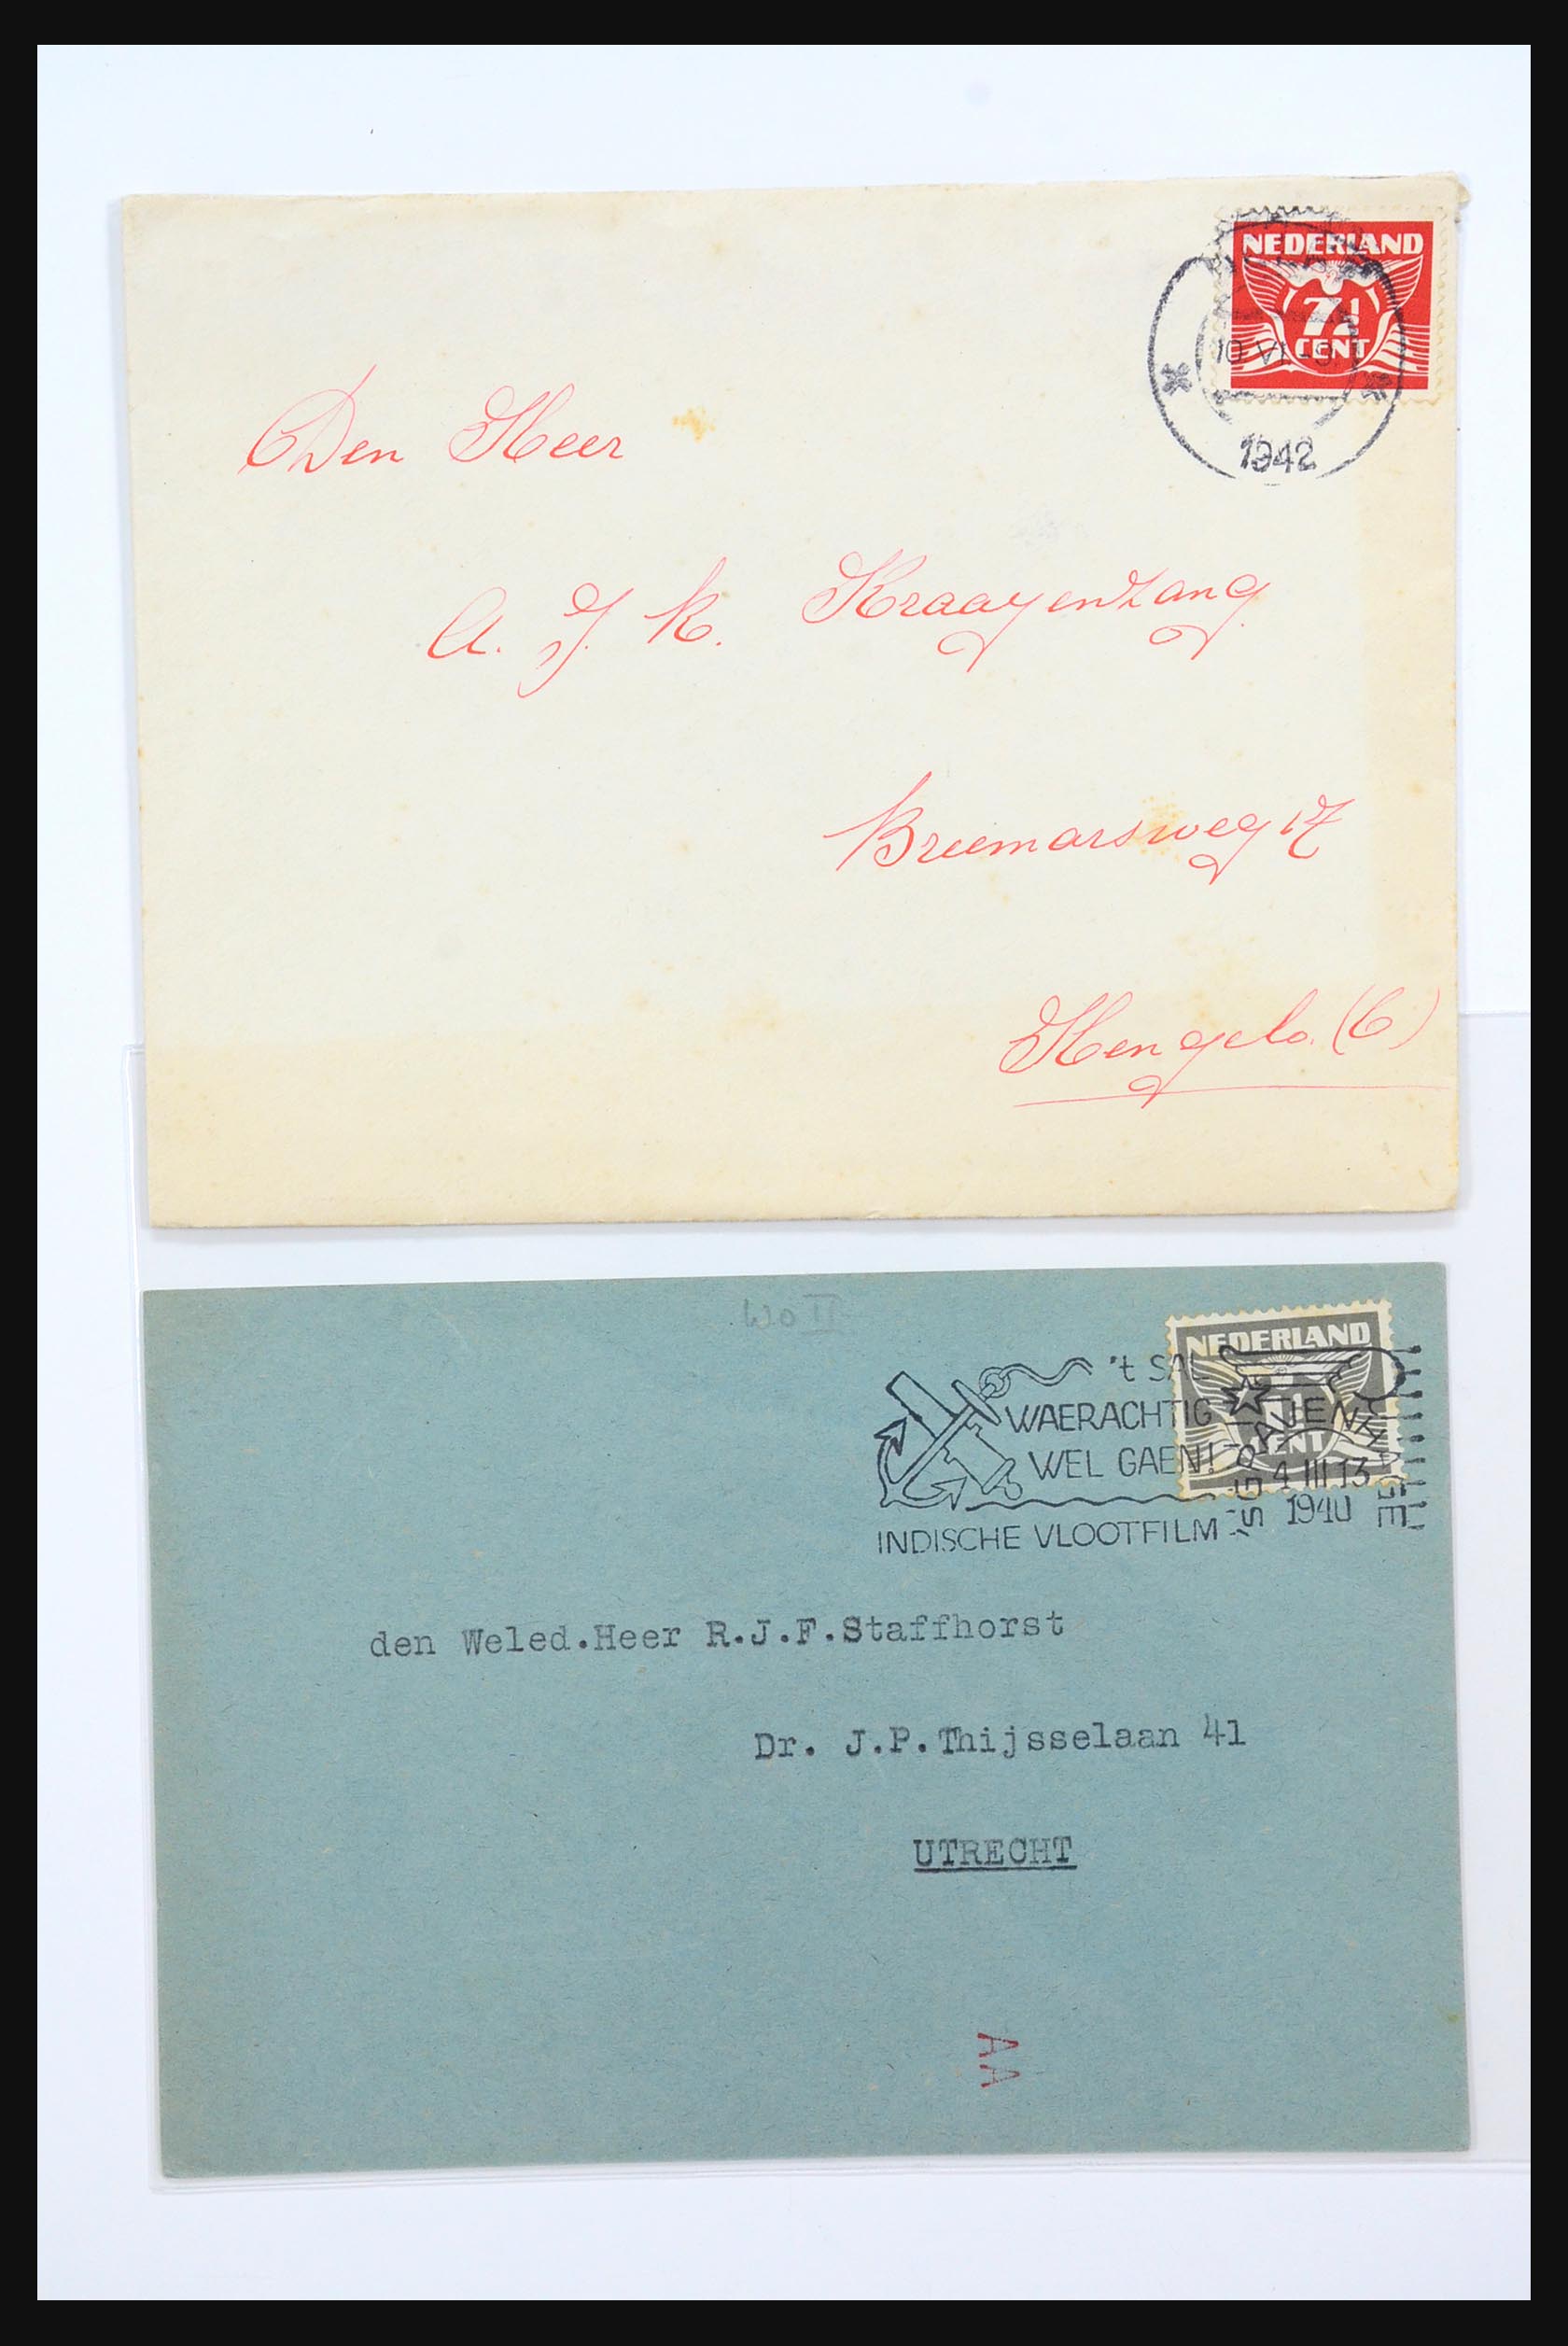 NEDERLAND
7½
CENT
10 VI
1942
Den Heer
A. J. K. Kraayenzang
Breemarsweg 17
Hengelo. (O)
WO II
NEDERLAND
CENT
't SAL
WAERACHTIG
WEL GAEN!
INDISCHE VLOOTFILM
'SGRAVENHAGE
4 III 13
1940
den Weled.Heer R.J.F.Staffhorst
Dr. J.P.Thijsselaan 41
UTRECHT
AA